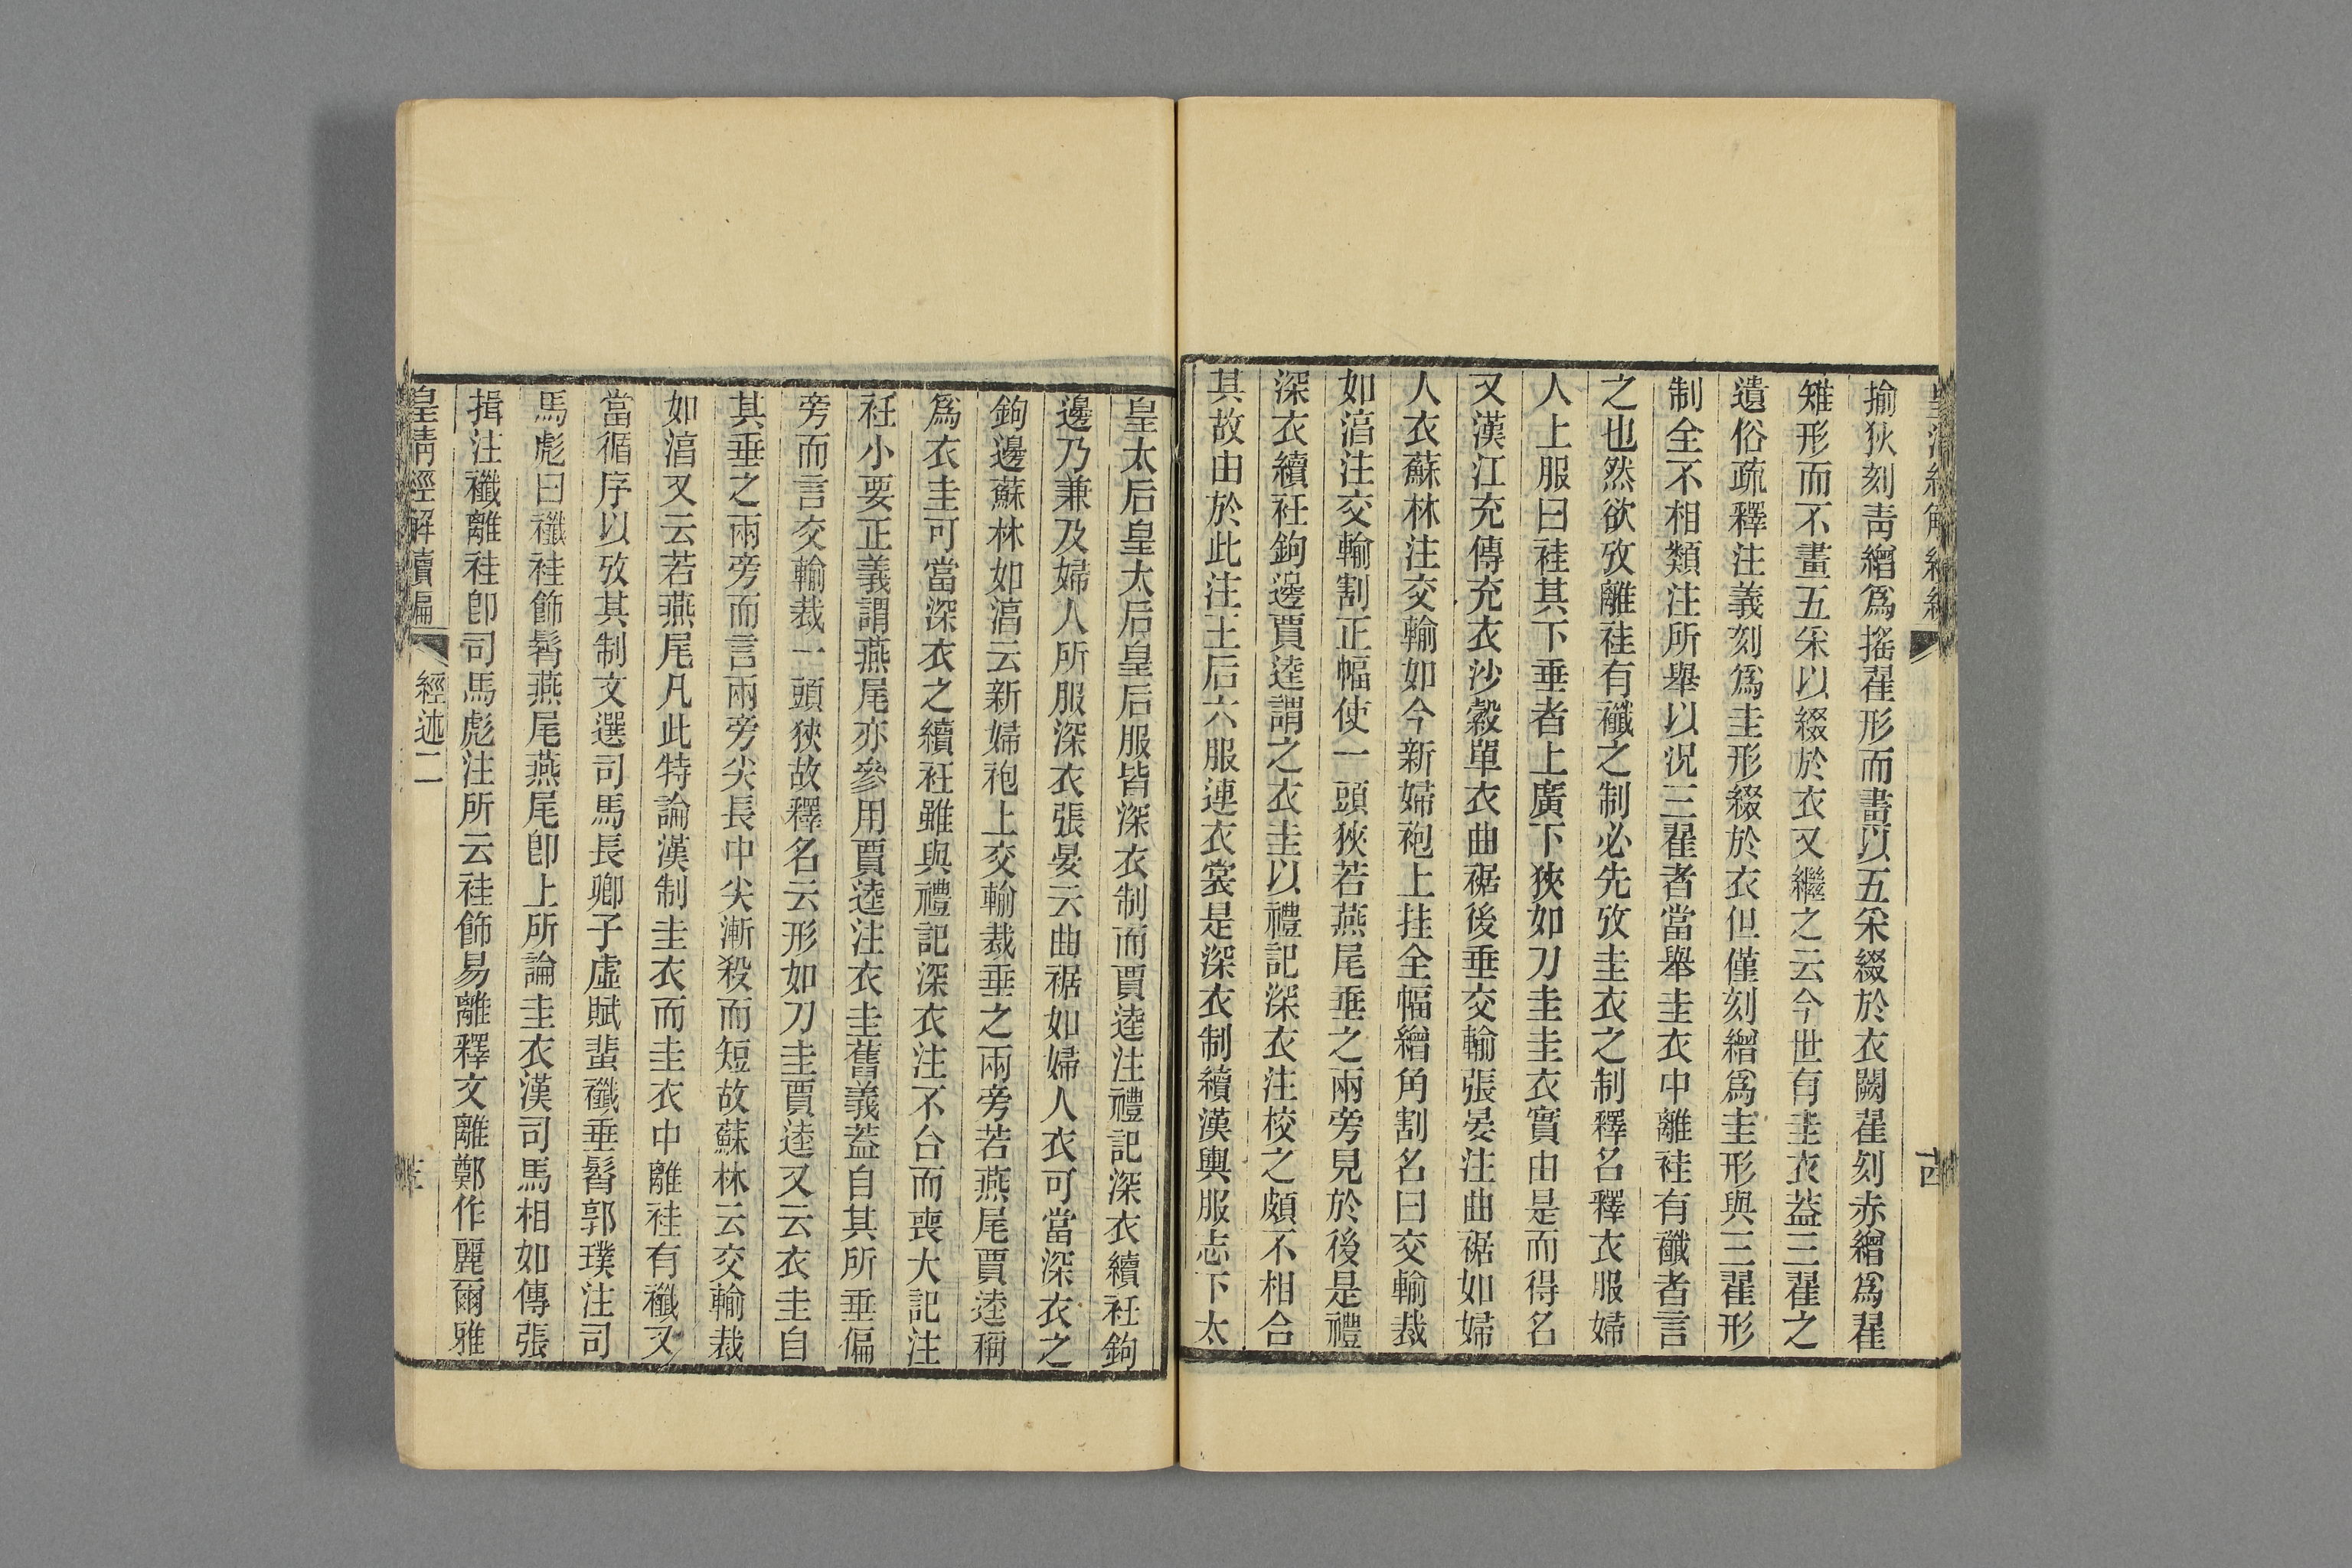 揄狄刻靑繒爲搖翟形而畫以五采綴於衣闕翟刻赤繒爲翟
雉形而不畫五采以綴於衣又繼之云今世有圭衣葢三翟之
遺俗疏釋注義刻爲圭形綴於衣但僅刻繒爲圭形與三翟形
制全不相類注所舉以況三翟者當舉圭衣中離袿有襳者言
之也然欲攷離袿有襳之制必先攷圭衣之制釋名釋衣服婦
人上服曰袿其下垂者上廣下狹如刀圭圭衣實由是而得名
又漢江充傳充衣沙縠單衣曲裾後垂交輸張晏注曲裾如婦
人衣蘇林注交輸如今新婦袍上挂全幅繒角割名曰交輸裁
如淳注交輸割正幅使一頭狹若燕尾垂之兩旁見於後是禮
深衣續衽鉤邊賈逵謂之衣圭以禮記深衣注校之頗不相合
其故由於此注王后六服連衣裳是深衣制續漢輿服志下太
皇太后皇太后皇后服皆深衣制而賈逵注禮記深衣續衽鉤
邊乃兼及婦人所服深衣張晏云曲裾如婦人衣可當深衣之
鉤邊蘇林如淳云新婦袍上交輸裁垂之兩旁若燕尾賈逵稱
爲衣圭可當深衣之續衽雖與禮記深衣注不合而喪大記注
衽小要正義謂燕尾亦參用賈逵注衣圭舊義葢自其所垂偏
旁而言交輸裁一頭狹故釋名云形如刀圭賈逵又云衣圭自
其垂之兩旁而言兩旁尖長中尖漸殺而短故蘇林云交輸裁
如淳又云若燕尾凡此特論漢制圭衣而圭衣中離袿有襳又
當循序以攷其制文選司馬長卿子虛賦蜚襳垂髾郭璞注司
馬彪曰襳袿飾髾燕尾燕尾卽上所論圭衣漢司馬相如傳張
揖注襳離袿卽司馬彪注所云袿飾易離釋文離鄭作麗爾雅
皇淸經解續編
經述二